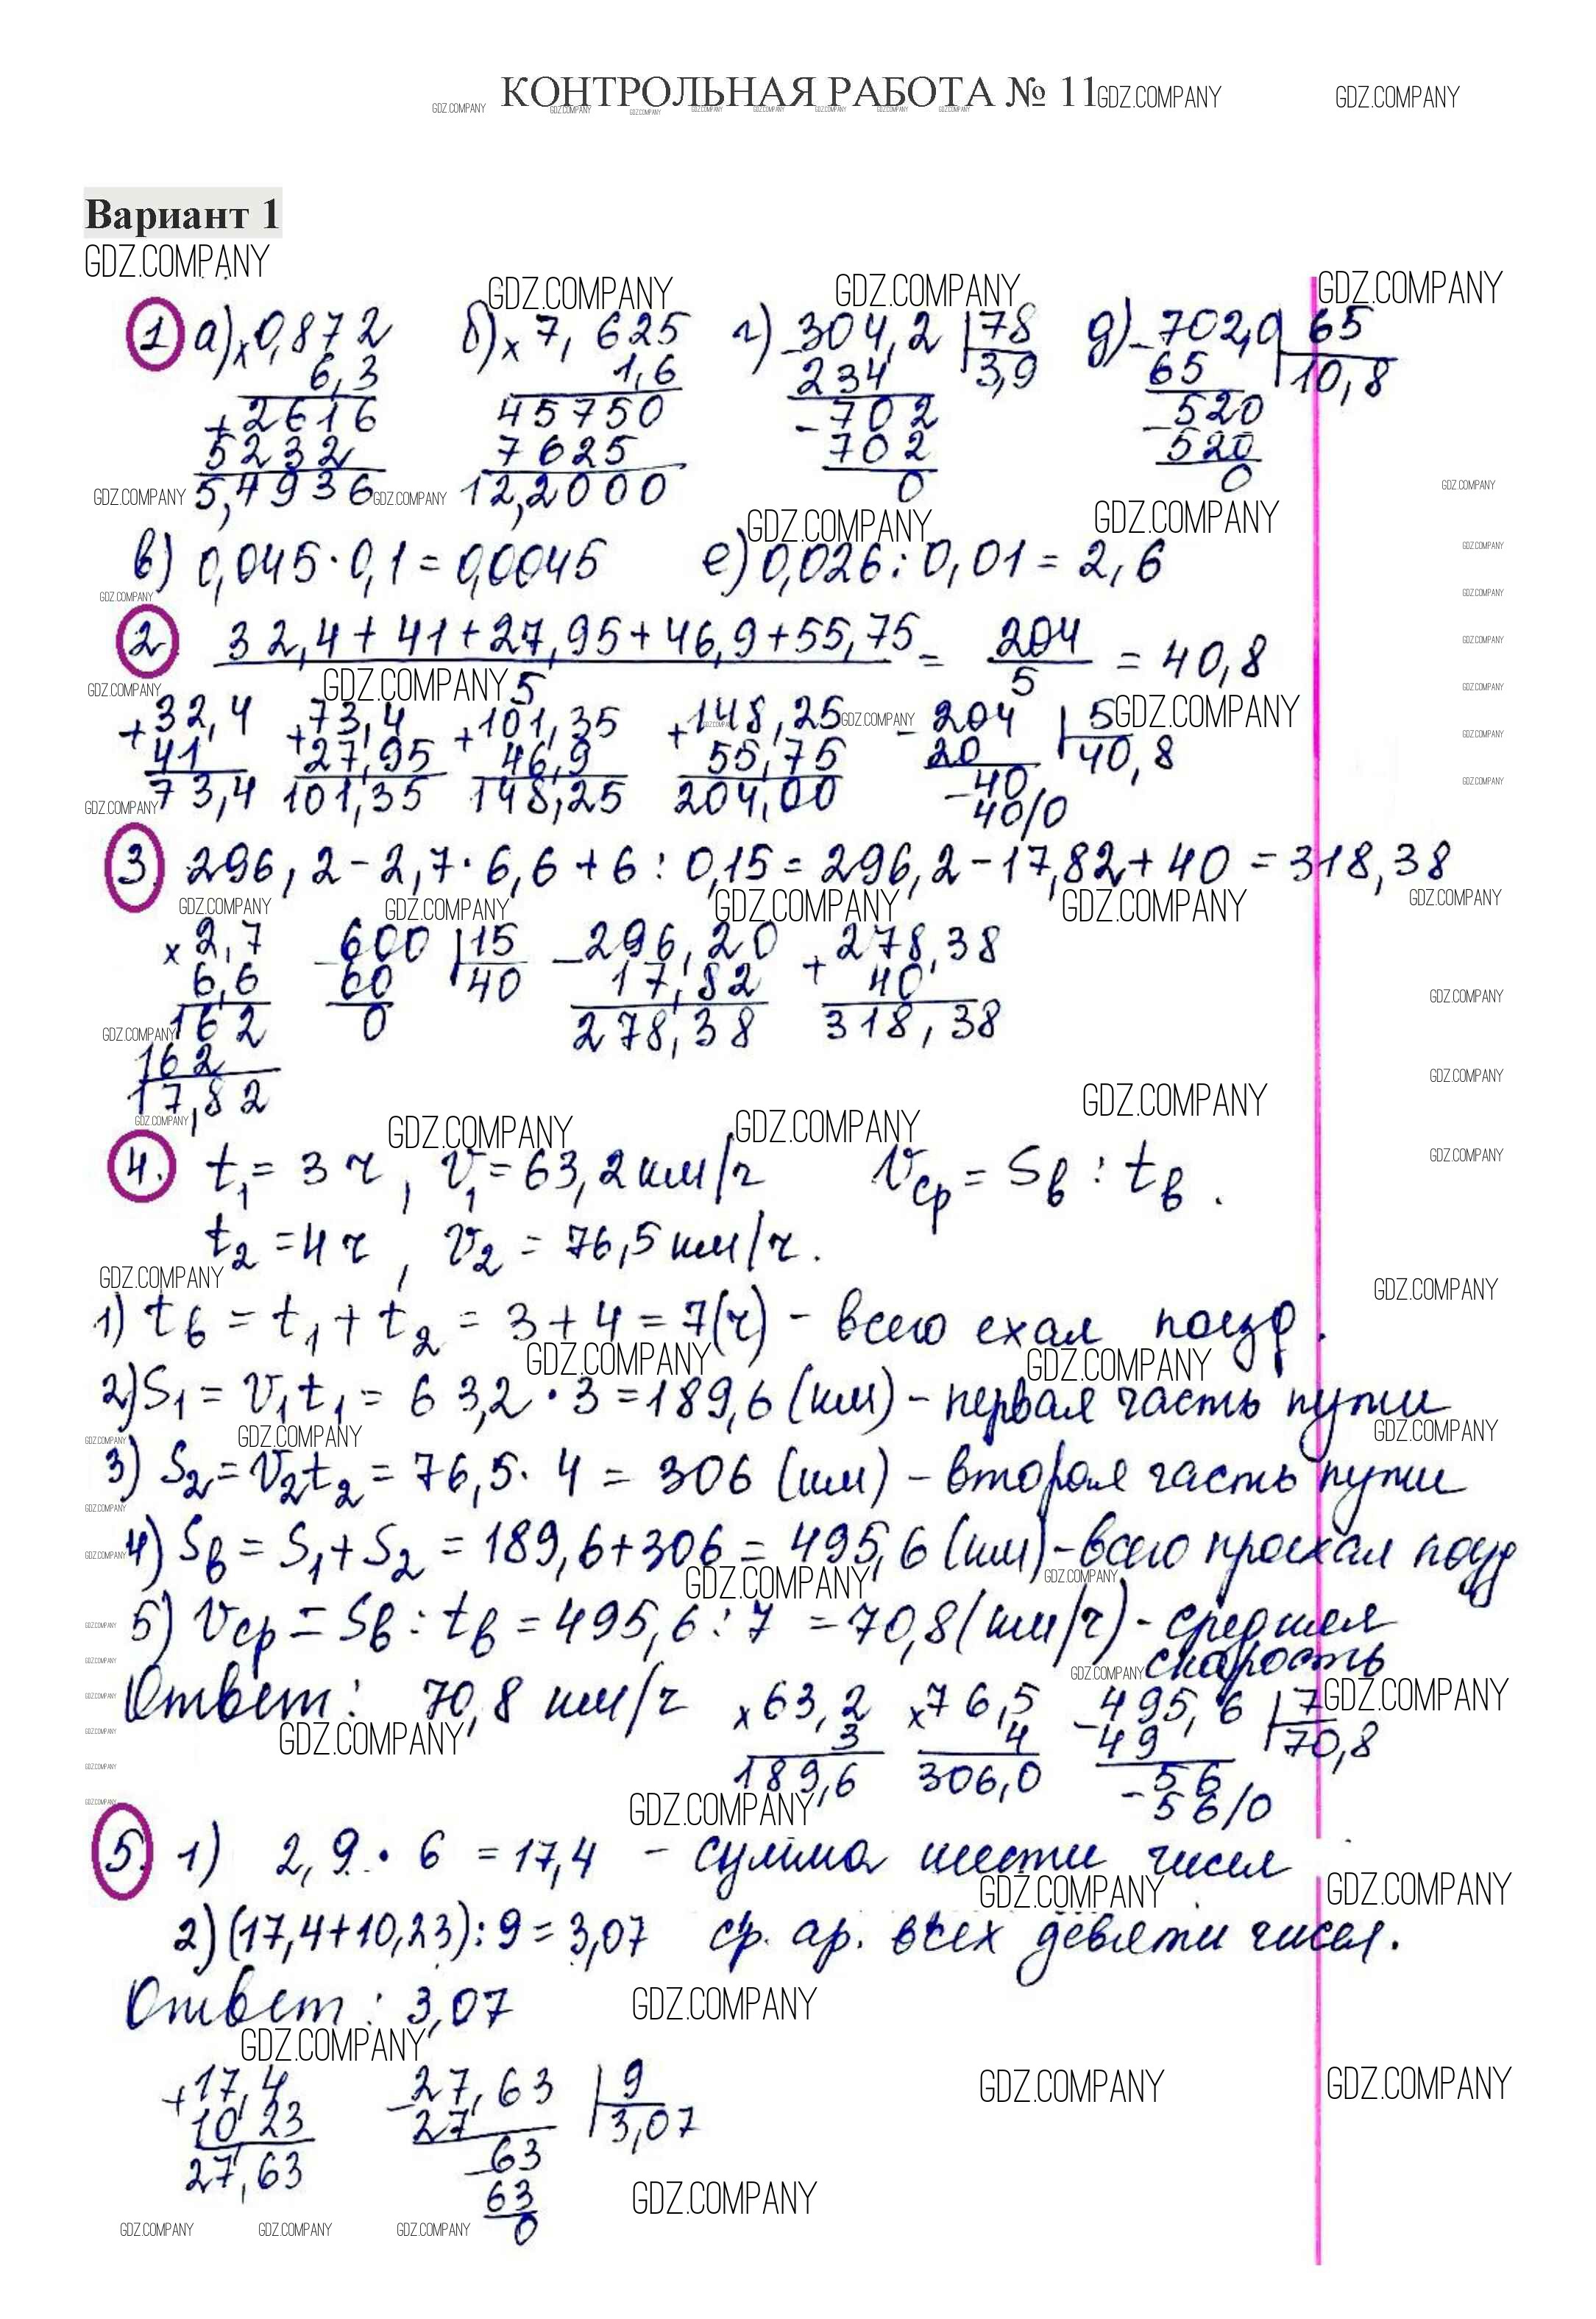 КОНТРОЛЬНАЯ РАБОТА № 11
GDZ.COMPANY
Вариант 1
GDZ.COMPANY
1 а) × 0,872 б) × 7,625 г) - 304,2 | 78 д) - 702,0 | 65
6,3 1,6 234 3,9 65 10,8
+ 2616 45750 - 702 - 520
5232 7625 702 520
5,4936 12,2000 0 0
в) 0,045 · 0,1 = 0,0045 е) 0,026 : 0,01 = 2,6
2 32,4 + 41 + 27,95 + 46,9 + 55,75 = 204 = 40,8
5 5
+ 32,4 + 73,4 + 101,35 + 148,25 - 204 | 5
41 27,95 46,9 55,75 20 40,8
73,4 101,35 148,25 204,00 - 40
40/0
3 296,2 - 2,7 · 6,6 + 6 : 0,15 = 296,2 - 17,82 + 40 = 318,38
× 2,7 - 600 | 15 - 296,20 + 278,38
6,6 60 40 17,82 40
162 0 278,38 318,38
162
17,82
4. t₁ = 3 ч, v₁ = 63,2 км/ч vср = Sв : tв.
t₂ = 4 ч, v₂ = 76,5 км/ч.
1) tв = t₁ + t₂ = 3 + 4 = 7(ч) - всего ехал поезд.
2) S₁ = v₁t₁ = 63,2 · 3 = 189,6 (км) - первая часть пути
3) S₂ = v₂t₂ = 76,5 · 4 = 306 (км) - вторая часть пути
4) Sв = S₁ + S₂ = 189,6 + 306 = 495,6 (км) - всего проехал поезд
5) vср = Sв : tв = 495,6 : 7 = 70,8 (км/ч) - средняя
скорость
Ответ: 70,8 км/ч × 63,2 × 76,5 - 495,6 | 7
3 4 49 70,8
189,6 306,0 - 56
56/0
5. 1) 2,9 · 6 = 17,4 - сумма шести чисел
2) (17,4 + 10,23) : 9 = 3,07 ср. ар. всех девяти чисел.
Ответ: 3,07
+ 17,4 - 27,63 | 9
10 23 27 3,07
27,63 - 63
63
0